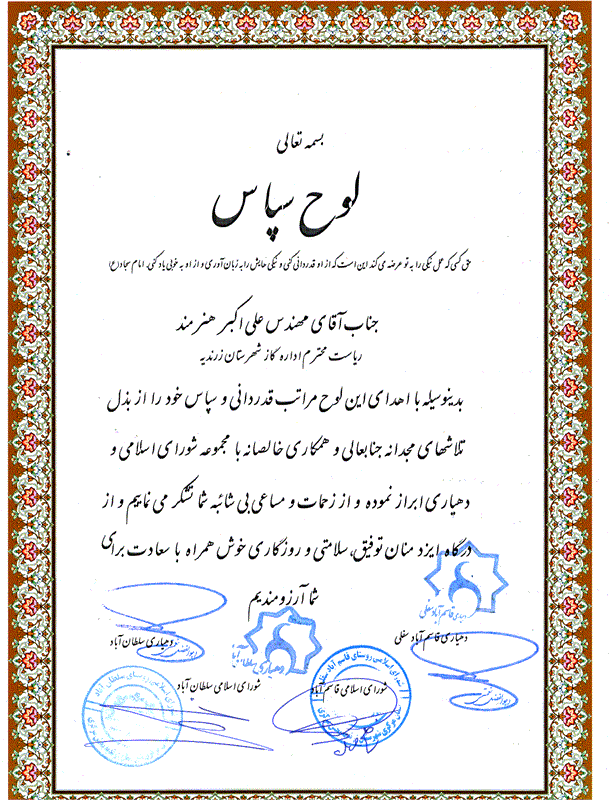 بسمه تعالی
لوح سپاس
حق کسی که عمل نیکی را به تو عرضه می کند این است که از او قدردانی کنی و نیکی هایش را به زبان آوری و از او به خوبی یاد کنی. امام سجاد(ع)
جناب آقای مهندس علی اکبر هنرمند
ریاست محترم اداره گاز شهرستان زرندیه
بدینوسیله با اهدای این لوح مراتب قدردانی و سپاس خود را از بذل
تلاشهای مجدانه جنابعالی و همکاری خالصانه با مجموعه شورای اسلامی و
دهیاری ابراز نموده و از زحمات و مساعی بی شائبه شما تشکر می نماییم و از
درگاه ایزد منان توفیق، سلامتی و روزگاری خوش همراه با سعادت برای
شما آرزومندیم
دهیاری قاسم آباد سفلی
دهیاری قاسم آباد سفلی
دهیاری سلطان آباد
دهیاری سلطان آباد
شورای اسلامی قاسم آباد
شورای اسلامی سلطان آباد
شورای اسلامی روستای قاسم آباد
شورای اسلامی روستای سلطان آباد